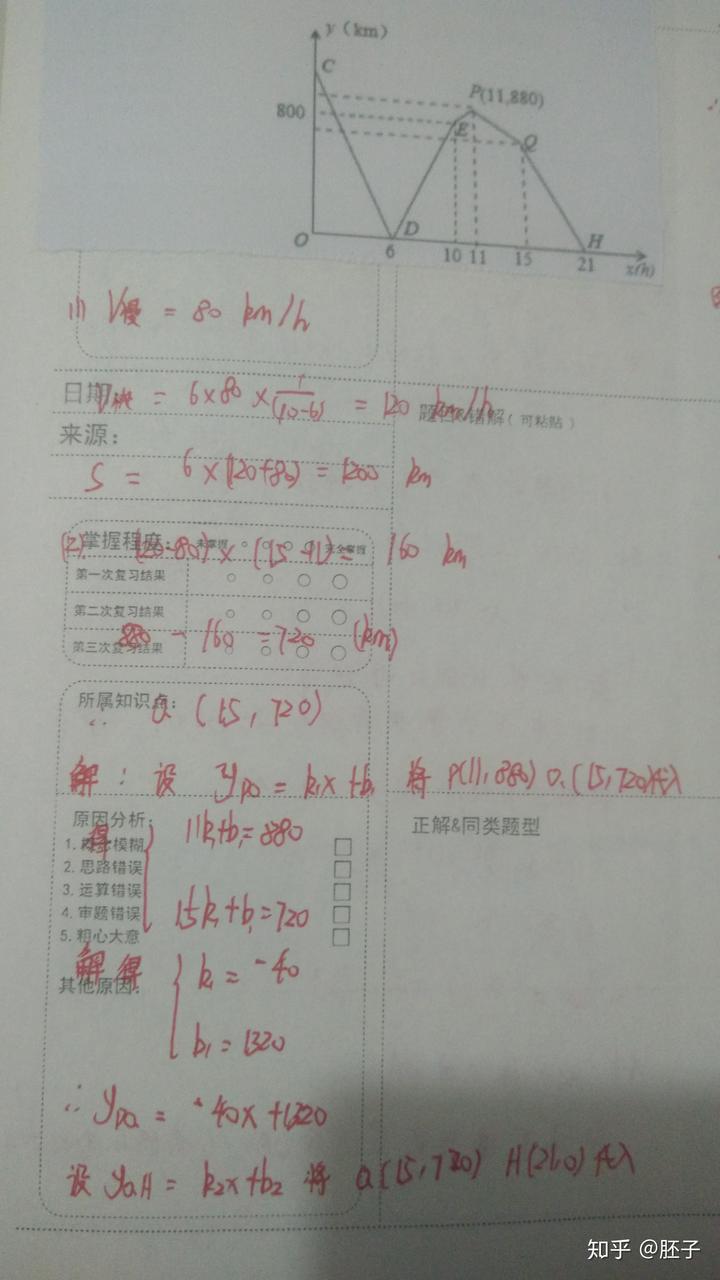 y (km)
C
P(11,880)
800
E
Q
O
D
H
6
10 11
15
21
x(h)
(1) V慢 = 80 km/h
日期:
V快 = 6×80×1/(10-6) = 120 km/h
题目&错解(可粘贴)
来源:
S = 6×(120+80) = 1200 km
掌握程度: 未掌握 完全掌握
(2) (120-80)×(15-11)= 160 km
第一次复习结果
第二次复习结果
880 - 160 = 720 (km)
第三次复习结果
所属知识点:
∴ Q (15,720)
解: 设 yPQ = k₁x+b₁ 将 P(11,880) Q(15,720)代入
原因分析:
正解&同类题型
得 11k₁+b₁=880
1. 模糊
2. 思路错误
3. 运算错误
4. 审题错误
15k₁+b₁=720
5. 粗心大意
解得 k₁ = -40
其他原因:
b₁ = 1320
∴ yPQ = -40x+1320
设 yQH = k₂x+b₂ 将 Q(15,720) H(21,0)代入
知乎 @胚子